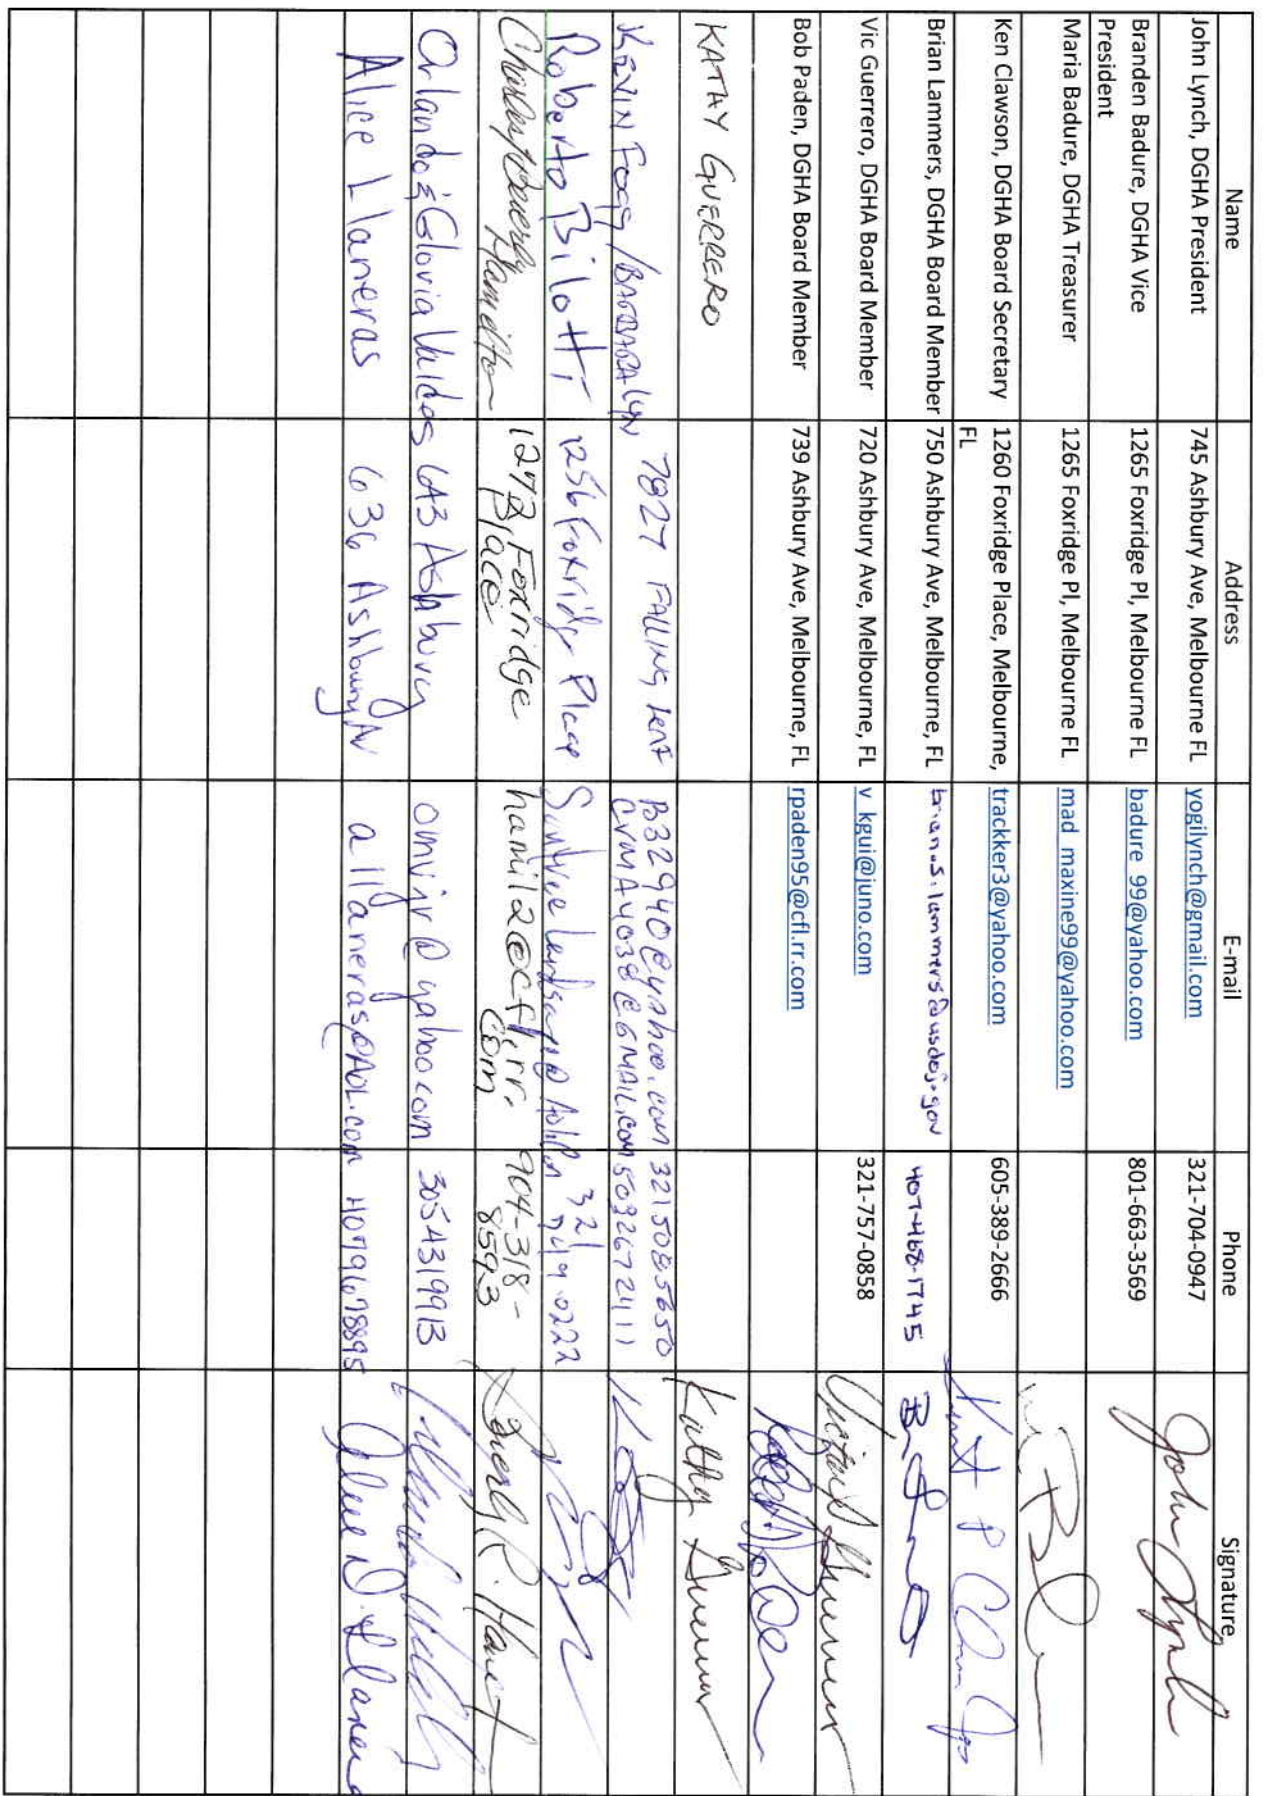 Name Address E-mail Phone Signature
John Lynch, DGHA President 745 Ashbury Ave, Melbourne FL yogilynch@gmail.com 321-704-0947 John Lynch
Branden Badure, DGHA Vice 1265 Foxridge Pl, Melbourne FL badure_99@yahoo.com 801-663-3569
President
Maria Badure, DGHA Treasurer 1265 Foxridge Pl, Melbourne FL mad_maxine99@yahoo.com
Ken Clawson, DGHA Board Secretary 1260 Foxridge Place, Melbourne, trackker3@yahoo.com 605-389-2666
FL
Brian Lammers, DGHA Board Member 750 Ashbury Ave, Melbourne, FL brian.s.lammers@usdoj.gov 407-468-1745
Vic Guerrero, DGHA Board Member 720 Ashbury Ave, Melbourne, FL v_kgui@juno.com 321-757-0858 Guerrero
Bob Paden, DGHA Board Member 739 Ashbury Ave, Melbourne, FL rpaden95@cfl.rr.com
KATHY GUERRERO Kathy Guerrero
KEVIN Fogg/BARBARA LYN 7827 FALLING LEAF B32940@yahoo.com 3215085650
CVMA4038@GMAIL.COM 5092672411
Roberto Bilotti 1256 Foxridge Place 321
749.0222
Charles/Beverly 1273 Foxridge hamil2@cfl.rr. 904-318-
Hamilton Place com 8593
Orlando & Gloria Valdes 643 Ashbury omvjr@yahoo.com 3054319913
Alice Llaneras 636 Ashbury Av allaneras@AOL.com 4079678895